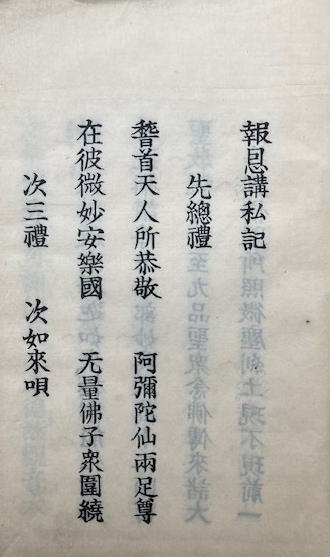 報恩講私記
先總禮
稽首天人所恭敬 阿彌陀仙兩足尊
在彼微妙安樂國 无量佛子衆圍繞
次三禮 次如來唄